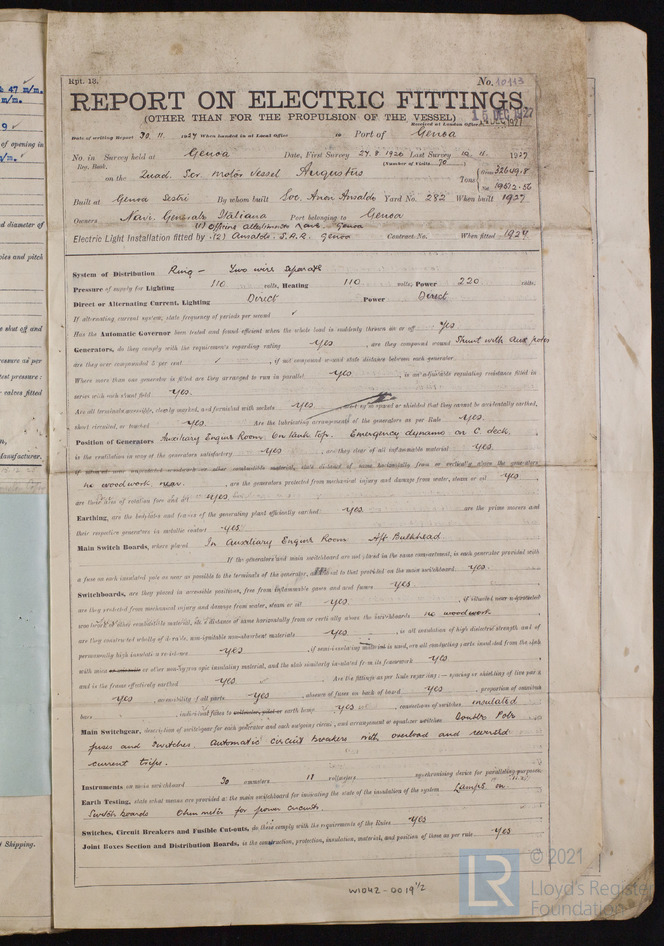 47 m/m.
m/m.
9
of opening in
m/m.
d diameter of
oles and pitch
e shut off and
ressure as per
test pressure:
r valves fitted
Manufacturer.
t Shipping.
Rpt. 13.
No. 10113
REPORT ON ELECTRIC FITTINGS
(OTHER THAN FOR THE PROPULSION OF THE VESSEL)
Date of writing Report 30. 11. 1927 When handed in at Local Office to Port of Genoa
Received at London Office
No. in Survey held at Genoa Date, First Survey 27. 8 1926 Last Survey 12. 11. 1927
Reg. Book. (Number of Visits 70)
on the Quad. Scr. Motor Vessel Augustus Tons Gross 32649.8
Net 19612.56
Built at Genoa Sestri By whom built Soc. Anon Ansaldo Yard No. 282 When built 1927
Owners Navi. Generale Italiana Port belonging to Genoa
Electric Light Installation fitted by (2) Ansaldo. S.A.R. Genoa Contract No. When fitted 1927
System of Distribution Ring - Two wire separate
Pressure of supply for Lighting 110 volts, Heating 110 volts, Power 220 volts.
Direct or Alternating Current, Lighting Direct Power Direct
If alternating current system, state frequency of periods per second
Has the Automatic Governor been tested and found efficient when the whole load is suddenly thrown on or off Yes
Generators, do they comply with the requirements regarding rating yes, are they compound wound Shunt with Aux poles
are they over compounded 5 per cent, if not compound wound state distance between each generator
Where more than one generator is fitted are they arranged to run in parallel yes, is an adjustable regulating resistance fitted in
series with each shunt field yes.
Are all terminals accessible, clearly marked, and furnished with sockets yes so spaced or shielded that they cannot be accidentally earthed,
short circuited, or touched yes. Are the lubricating arrangements of the generators as per Rule yes.
Position of Generators Auxiliary Engine Room. On tank top. Emergency dynamo on C. deck.
is the ventilation in way of the generators satisfactory yes, are they clear of all inflammable material yes.
if situated near unprotected woodwork or other combustible material, state distance of same horizontally from or vertically above the generators
no woodwork near., are the generators protected from mechanical injury and damage from water, steam or oil yes
are their axes of rotation fore and aft yes
Earthing, are the bedplates and frames of the generating plant efficiently earthed yes. are the prime movers and
their respective generators in metallic contact yes
Main Switch Boards, where placed In Auxiliary Engine Room Aft Bulkhead
If the generators and main switchboard are not placed in the same compartment, is each generator provided with
a fuse on each insulated pole as near as possible to the terminals of the generator, to that provided on the main switchboard yes.
Switchboards, are they placed in accessible positions, free from inflammable gases and acid fumes yes
are they protected from mechanical injury and damage from water, steam or oil yes, if situated near unprotected
woodwork or other combustible material, state distance of same horizontally from or vertically above the switchboards no woodwork
are they constructed wholly of durable, non-ignitable non-absorbent materials yes, is all insulation of high dielectric strength and of
permanently high insulation resistance yes, if semi-insulating material is used, are all conducting parts insulated from the slab
with mica or other non-hygroscopic insulating material, and the slab similarly insulated from its framework yes
and is the frame effectively earthed yes. Are the fittings as per Rule regarding:— spacing or shielding of live parts
yes, accessibility of all parts yes, absence of fuses on back of board yes, proportion of omnibus
bars, individual fuses to earth lamp yes, connections of switches insulated
Main Switchgear, description of switchgear for each generator and each outgoing circuit, and arrangement of equalizer switches Double Pole
fuses and switches. Automatic circuit breakers with overload and reversed
current trips.
Instruments on main switchboard 30 ammeters 11 voltmeters synchronising device for paralleling purposes
Earth Testing, state what means are provided at the main switchboard for indicating the state of the insulation of the system Lamps on
Switch boards Ohm meter for power circuits
Switches, Circuit Breakers and Fusible Cut-outs, do these comply with the requirements of the Rules yes
Joint Boxes Section and Distribution Boards, is the construction, protection, insulation, material, and position of these as per rule yes.
W1042-0019 1/2
© 2021
LR
Lloyd's Register
Foundation